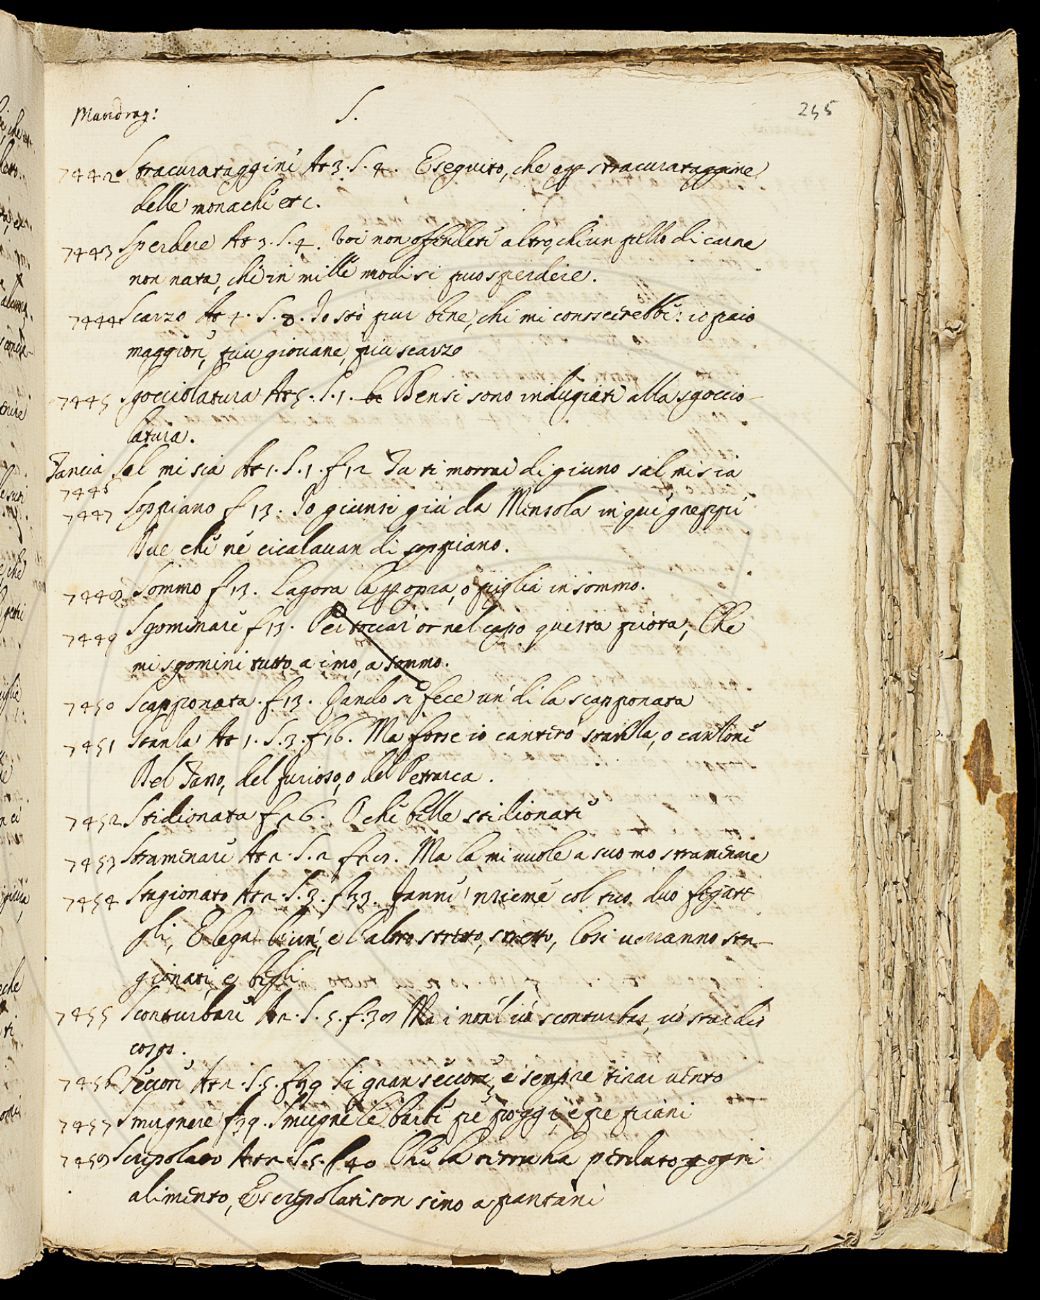 Mandrag:
S.
255
7442 Stracurataggine At 3. S. 4. Eseguito, che per stracurataggine
delle monache etc.
7443 Sperdere At 3. S. 4. Voi non offendete altro, che un pezzo di carne
non nata, che in mille modi si puo sperdere.
7444 Scarzo At 4. S. 8. Io sto pur bene, chi mi conoscerebbe: io paio
maggiore, piu giovane, piu scarzo
7445 Sgocciolatura At 5. S. 1. Bensi sono indugiati alla sgoccio-
latura.
Tancia Sal mi sia At 1. S. 1. f 12 Tu ti morrai di giuno sal mi sia
7446
7447 Soppiano f 13. Io giunsi giu da Mensola in que' greppi
Due che ne cicalavan di soppiano.
7448 Sommo f 13. Lagora la zoppa, o piglia in sommo.
7449 Sgominare f 13. Per toccar or nel capo questa fiora, Che
mi sgomini tutto, a imo, a sommo.
7450 Scapponata f 13. Quando si fece un' di la scapponata
7451 Stanla' At 1. S. 3. f 16. Ma forse io cantero stanlla, o canzone
Del Tano, del furioso, o del Petrarca.
7452 Stidionata f 26. O che belle stidionate
7453 Stramenare At 2. S. 2 f 29. Ma la mi vuole a suo mo stramenare
7454 Stagionato At 2. S. 3. f 33. Fanne' nsieme col tuo duo fegate
gli, E lega l'un, e l'altro stretto, stretto, Cosi verranno sta-
gionati, e begli
7455 Sconturbare At 2. S. 5. f. 39 Ma i non l'vo sconturbar, vo star di
corpo.
7456 Seccore At 2. S. 5. f 39 Si gran seccore, e sempre tirar vento
7457 Smugnere f 39. Smugne le barbe pe' poggi, e pe' piani
7458 Scripolato At 2. S. 5. f 40 Che la terra ha perduto ogni
alimento, E scripolati son sino a pantani